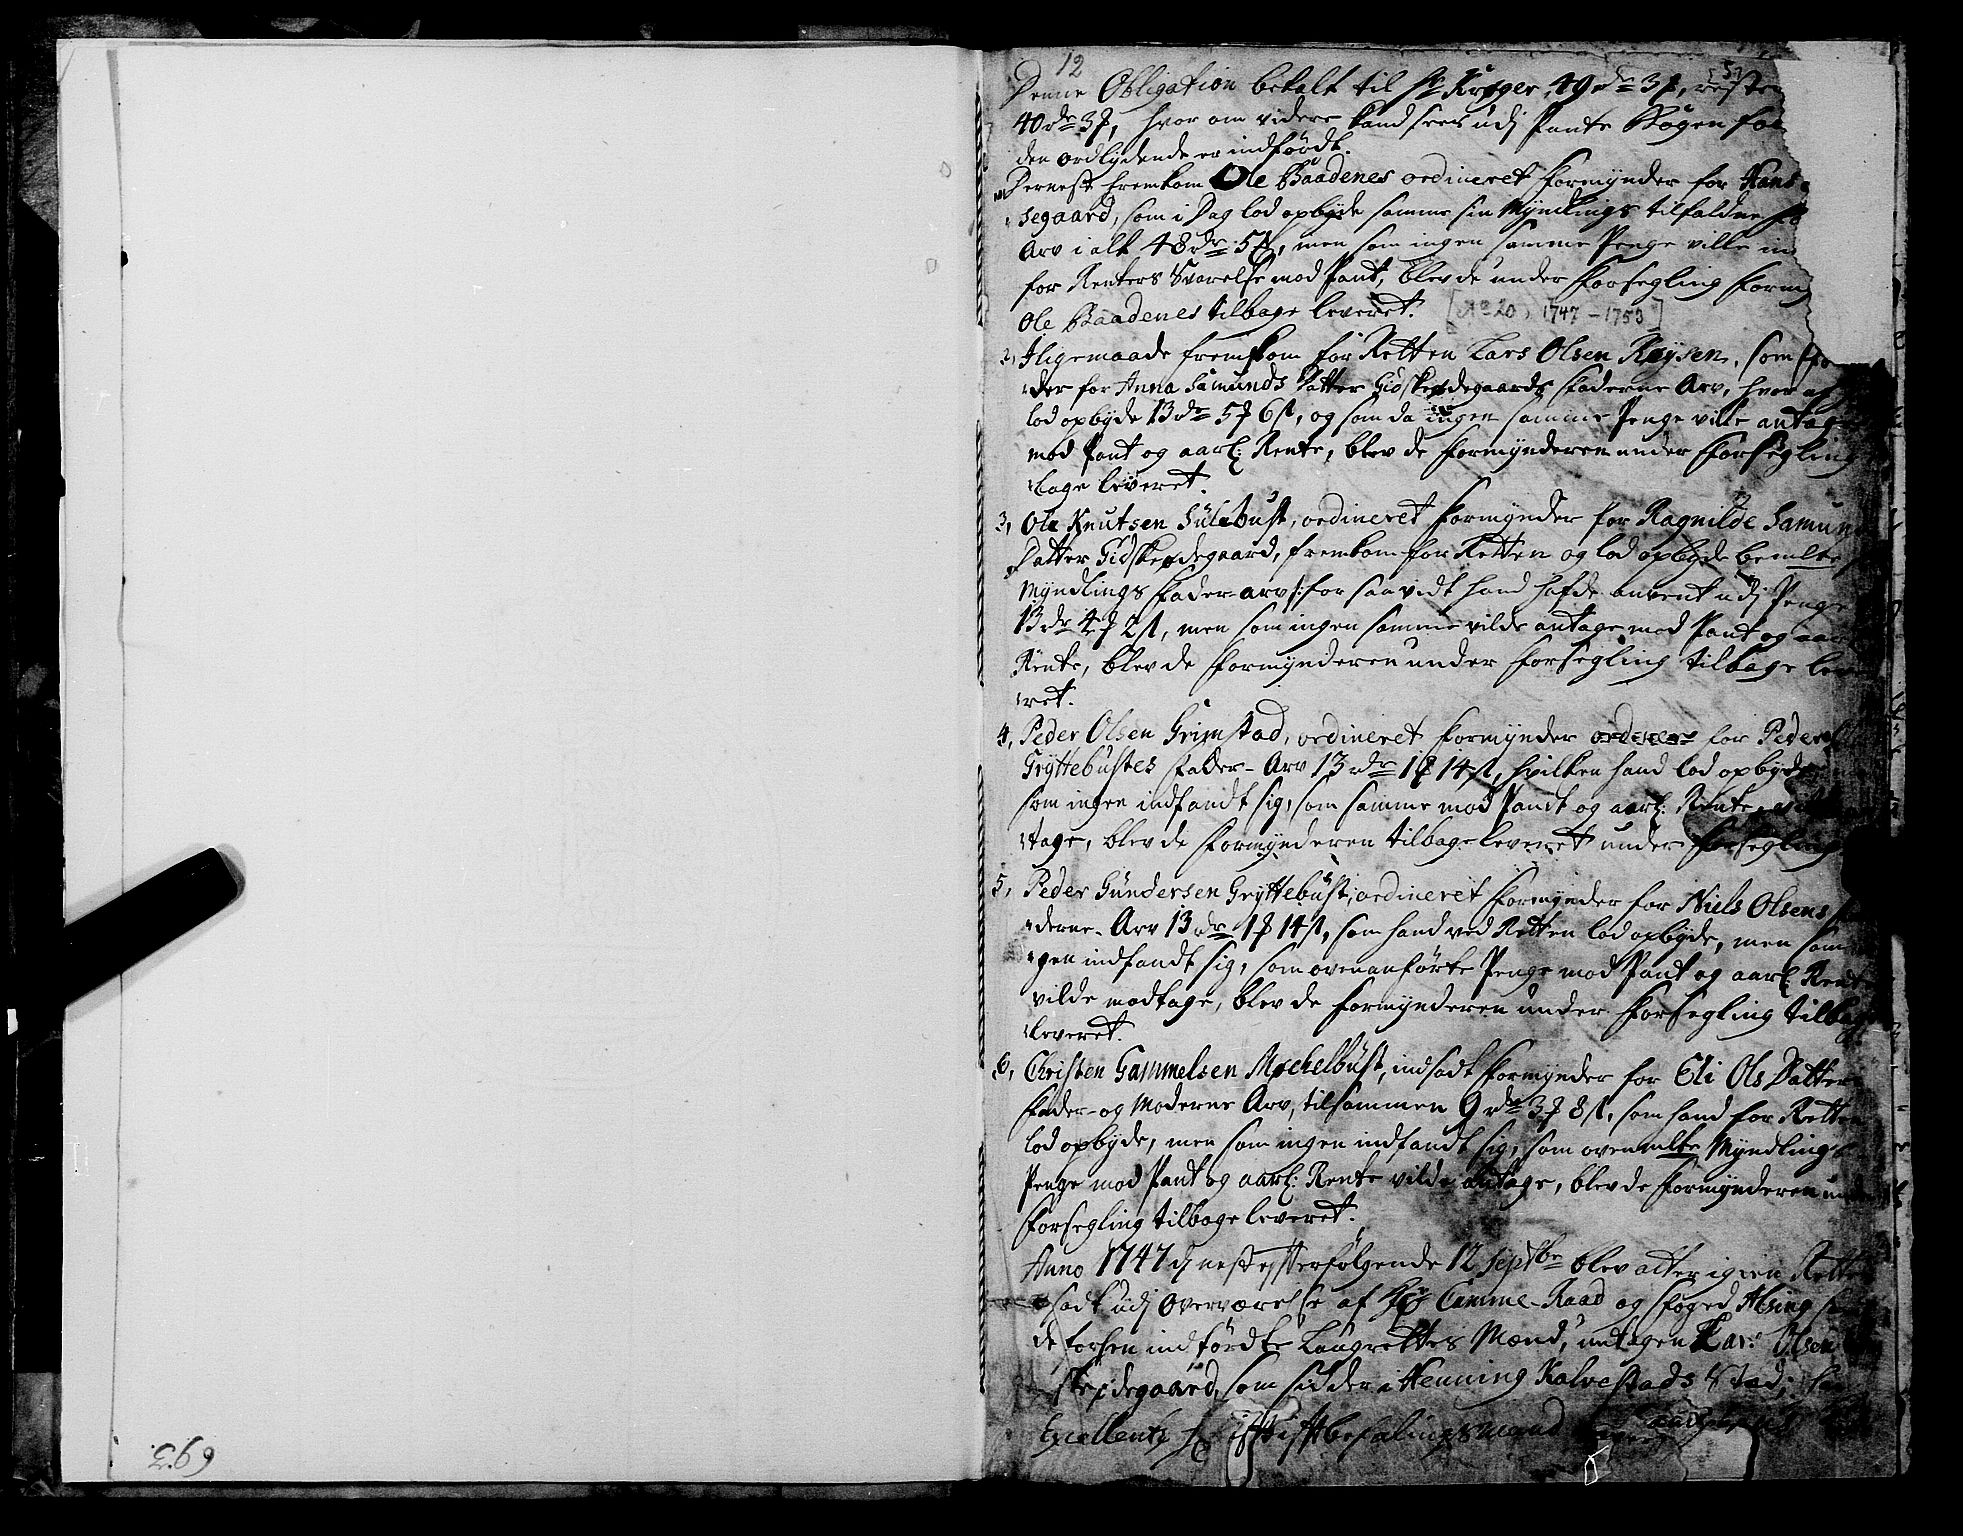 12
Denne Obligation betalt til Sr Krøger 49 rdr 3 ß, resten
40 rdr 3 ß, hvor om videre kand sees udj Pante Bogen
den ordlydende er indfødt.
Dernest fremkom Ole Baadenes ordineret Formynder for Hans
segaard, som i Dag lod opbyde samme sin Myndlings tilfaldne
Arv i alt 48 rdr 5 ß, men som ingen samme Penge ville
for Renters Svarelse mod Pant, blev de under Forsegling Form
Ole Baadenes tilbage leveret. [No 20, 1747-1753]
2, Jligemaade fremkom for Retten Lars Olsen Røysen, som
der for Anna Samunds Datter Gidskeødegaards Faderne Arv, hvor af
lod opbyde 13 rdr 5 ß 6 s, og som da ingen samme Penge ville antage
mod Pant og aarl: Rente, blev de Formynderen under Forsegling
bage leveret.
3, Ole Knutsen Sulebust, ordineret Formynder for Ragnilde Samun
Datter Gidskeødegaard, fremkom for Retten og lod opbyde bemelte
Myndlings Fader-arv /: for saavidt hand hafde anvent udj Penge
13 rdr 4 ß 2 s, men som ingen samme vilde antage mod Pant og aarl
Rente, blev de Formynderen under Forsegling tilbage leve
ret.
4, Peder Olsen Grimstad, ordineret Formynder for Peder
Gryttebustes Fader-Arv 13 rdr 1 ß 14 s, hvilken hand lod opbyde
som ingen indfandt sig, som samme mod Pandt og aarl: Rente
tage, blev de Formynderen tilbage leveret under Forsegling
5, Peder Gundersen Gryttebust, ordineret Formynder for Niels Olsens
derne-Arv 13 rdr 1 ß 14 s, som hand ved Retten lod opbyde, men som
gen indfandt sig, som ovenanførte Penge mod Pant og aarl: Rente
vilde modtage, blev de Formynderen under Forsegling tilbage
leveret.
6, Christen Gammelsen Mochelbust, indsadt Formynder for Eli Ols Datter
Fader- og Moderne Arv, tilsammen 9 rdr 3 ß 8 s, som hand for Retten
lod opbyde, men som ingen indfandt sig, som ovenmelte Myndlings
Penge mod Pant og aarl: Rente vilde antage, blev de Formynderen under
Forsegling tilbage leveret.
Anno 1747 dj nest efterfølgende 12 Septbr blev atter igien Retten
sadt udj Overværelse af Hr Camme-Raad og Foged Alsing
de forhen indførdte Laugrettes Mænd, undtagen Lars Olsen
skeødegaard, som sidder i Henning Kalvestads Stad,
Excellentz Hr Stiftbefalingsmand
E.69